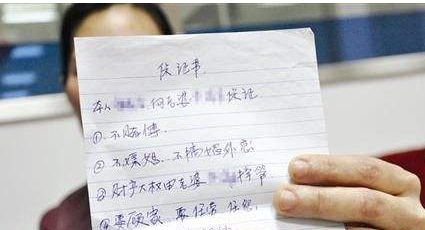 保证书
本人 向老婆 保证
①不赌博
②不嫖娼、不搞婚外恋
③财产大权由老婆 掌管
④要顾家 要任劳任怨